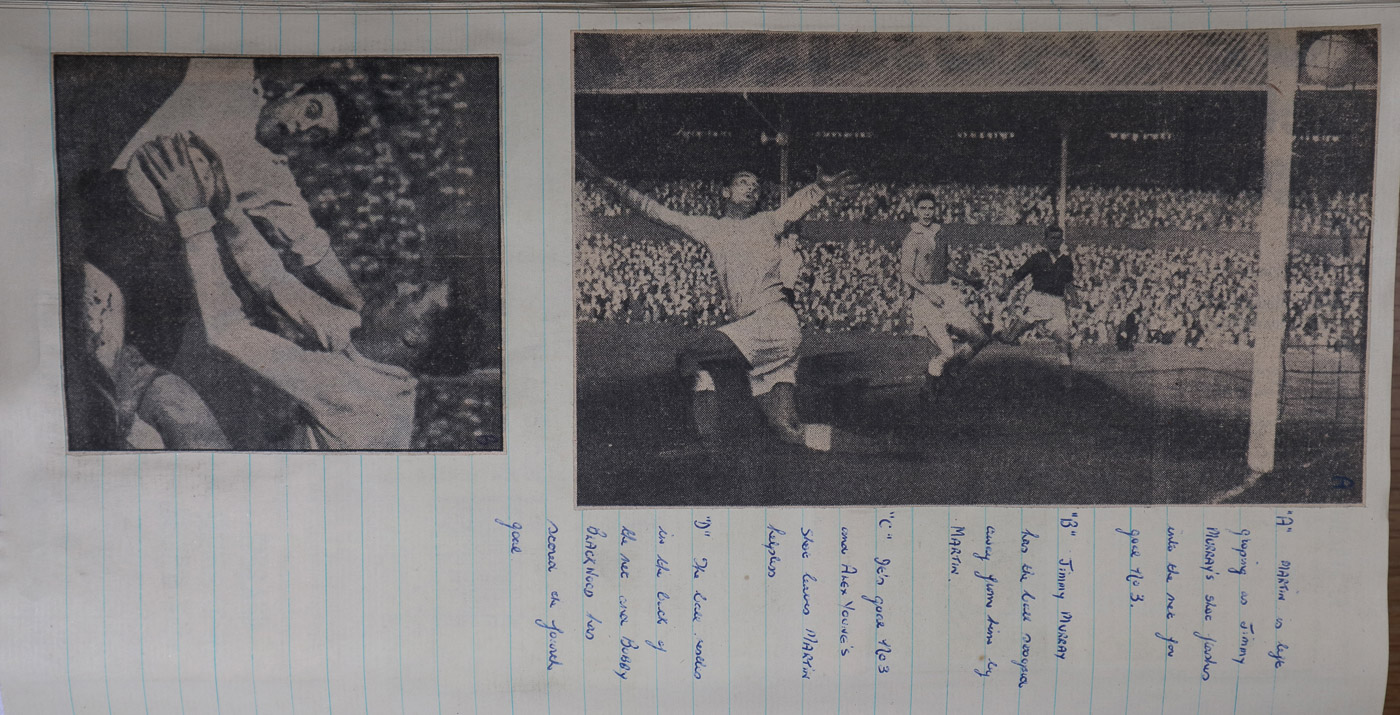 "A" MARTIN is left
groping as Jimmy
MURRAY'S shot flashes
into the net for
goal No 3.
"B" Jimmy MURRAY
has the ball snapped
away from him by
MARTIN.
"C" It's goal No 3
and ALEX YOUNG'S
shot leaves MARTIN
helpless
"D" The ball rolls
in the back of
the net and BOBBY
BLACKWOOD has
scored the fourth
goal
A